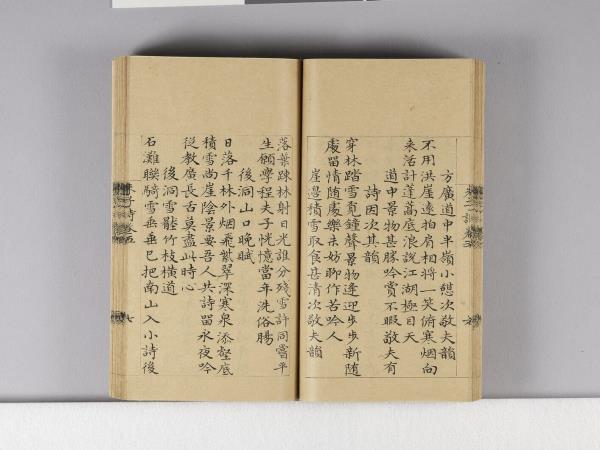 方廣道中半嶺小憩次敬夫韻
不用洪崖遠拍肩相將一笑俯寒烟向
來活計蓬蒿底浪說江湖極目天
道中景物甚勝吟賞不暇敬夫有
詩因次其韻
穿林踏雪覓鐘聲景物逢迎步步新隨
處留情隨處樂未妨聊作苦吟人
崖邊積雪取食甚清次敬夫韻
落葉踈林射日光誰分殘雪許同嘗平
生願學程夫子恍憶當年洗俗腸
後洞山口晚賦
日落千林外烟飛紫翠深寒泉添壑底
積雪尚崖陰景要吾人共詩留永夜吟
從教廣長舌莫盡此時心
後洞雪壓竹枝橫道
石灘聯騎雪垂垂已把南山入小詩後
朱子詩卷五